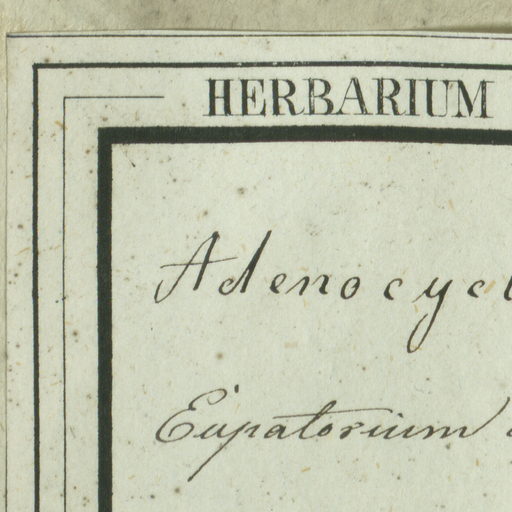 HERBARIUM
Adenocycl
Eupatorium